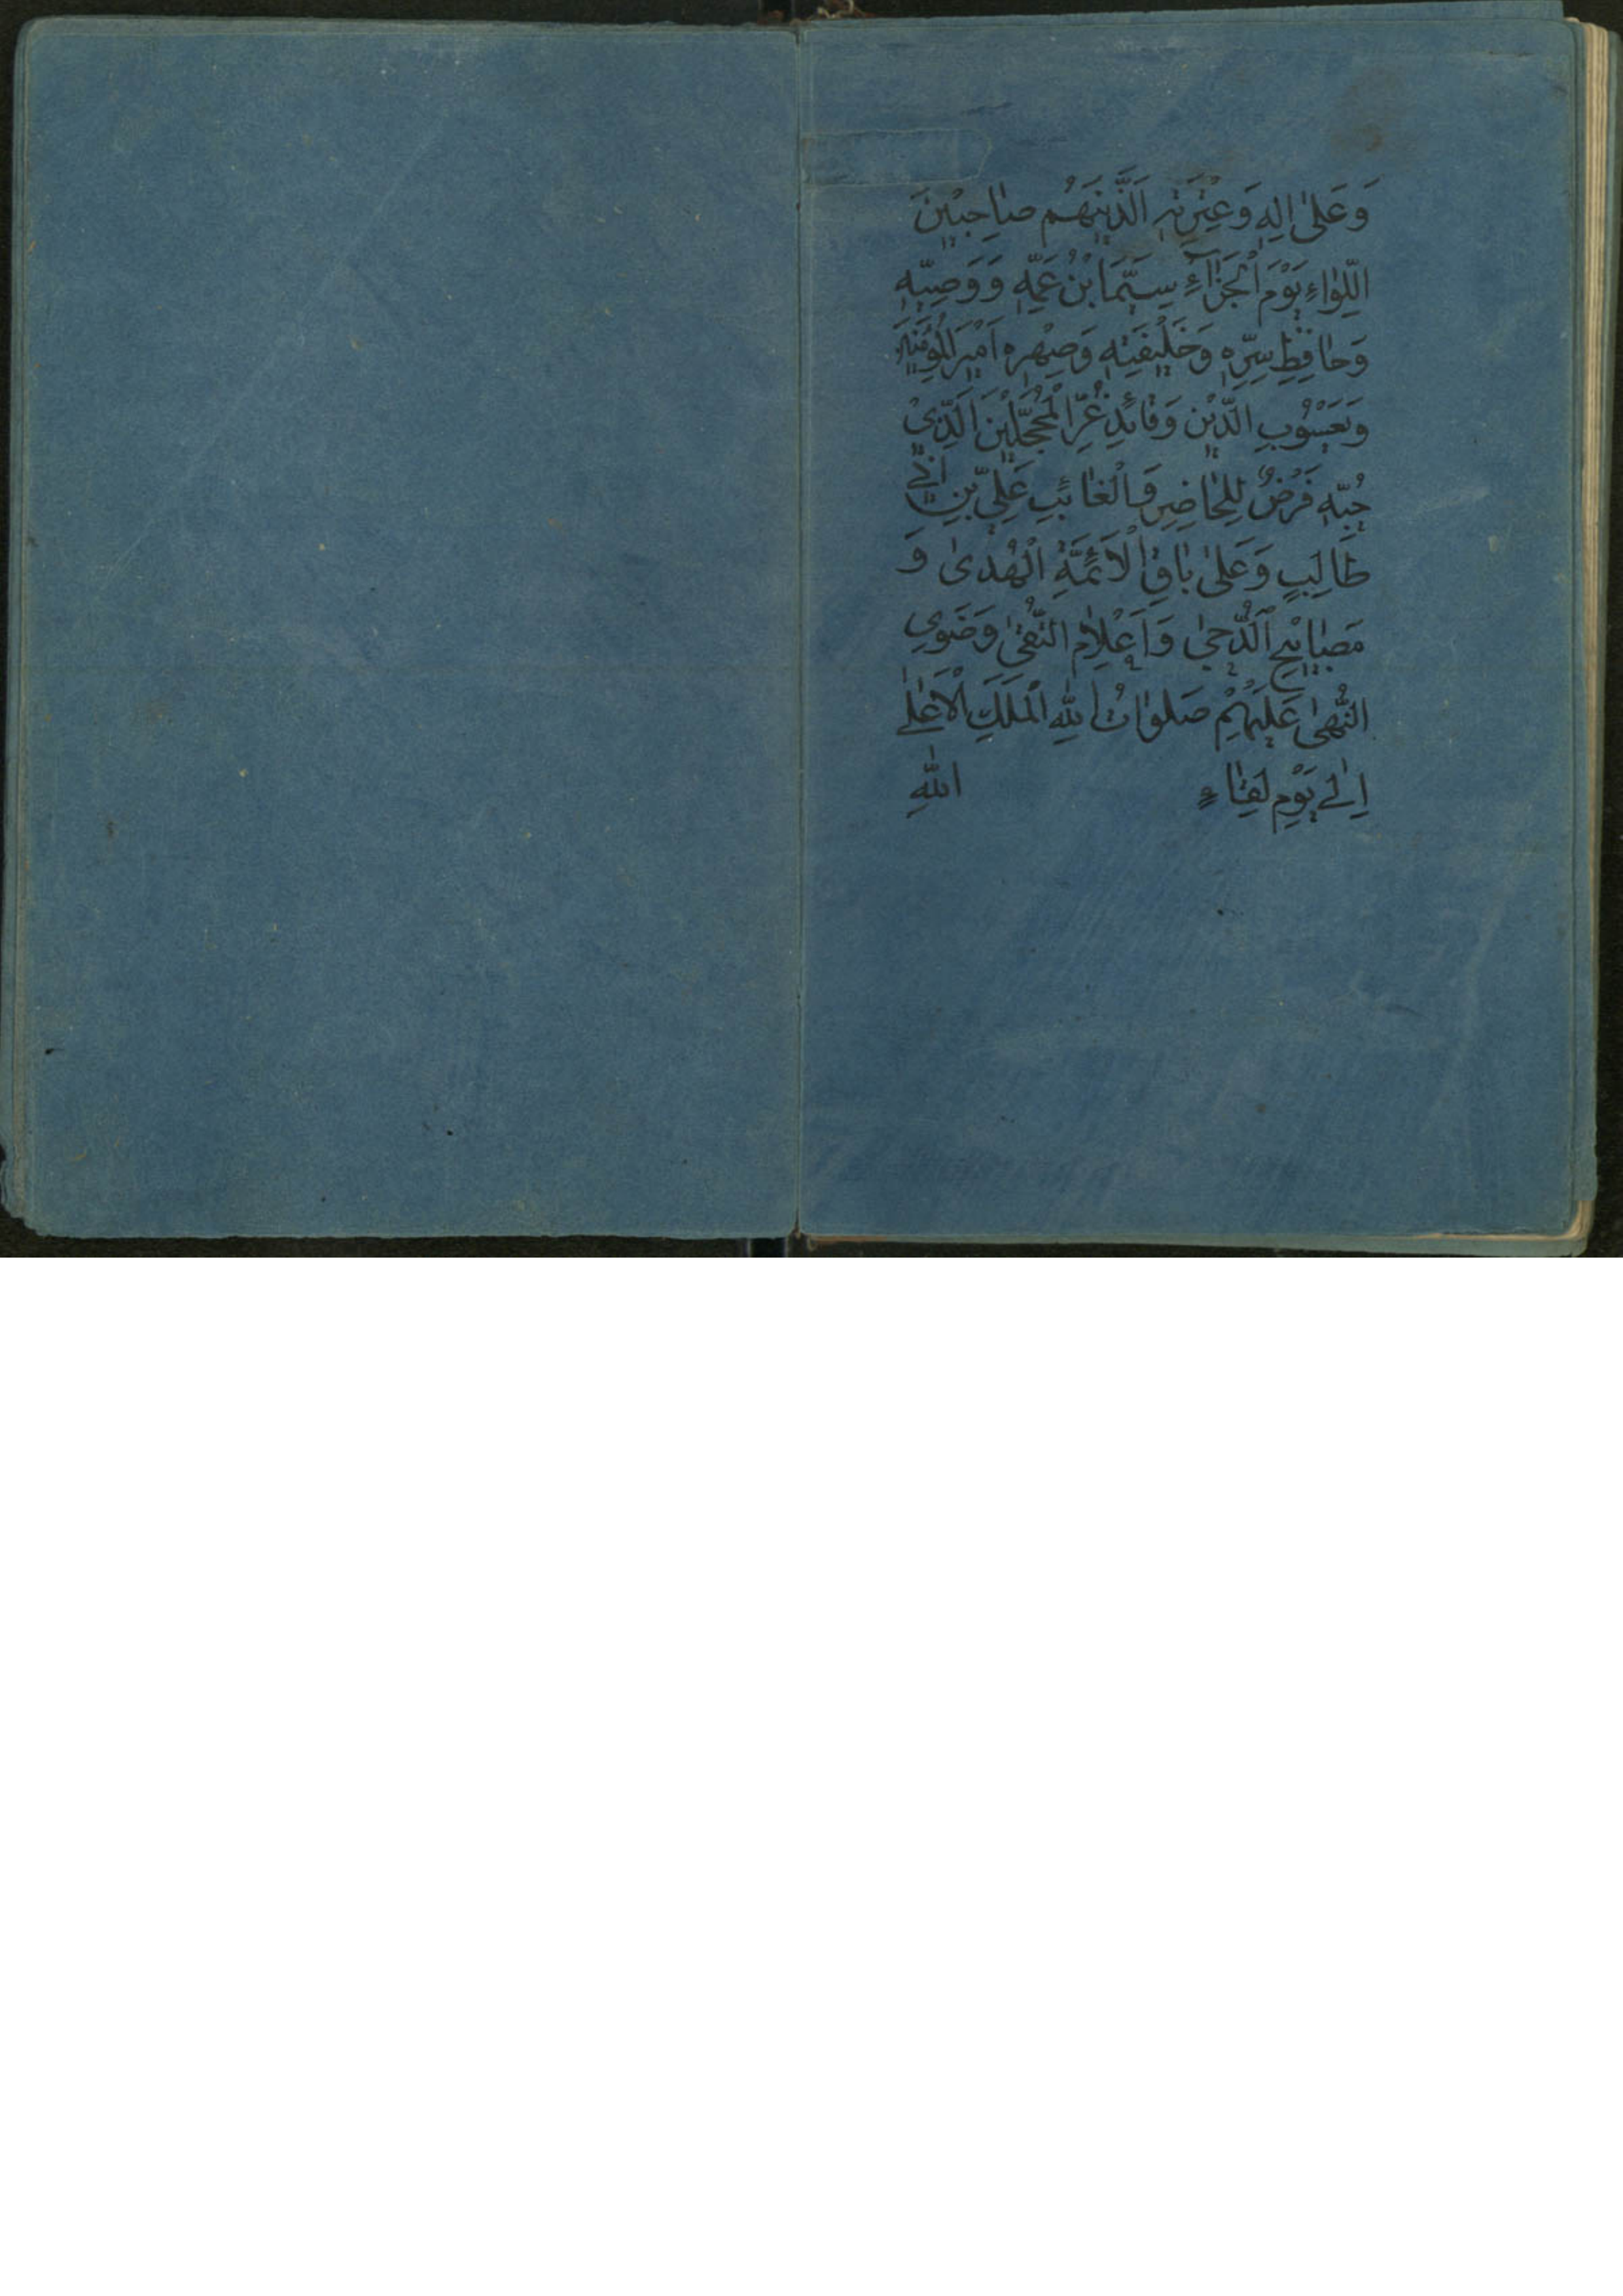 وَعَلىٰ اٰلِهٖ وَعِتْرَتِهٖ اَلَّذِيْنَهُمْ صٰاحِبيْنَ
اللِّوٰاءِ يَوْمَ اْلجَزٰآءِ سِيَّمَا بْنُ عَمِّهٖ وَوَصِيِّهٖ
وَحٰافِظِ سِرِّهٖ وَخَلِيْفَتِهٖ وَصِهْرِهٖ اَمِيْرِ الْمُؤمِنِيْنَ
وَيَعْسُوْبِ الدِّيْنِ وَقٰائِدِ غُرِّ الْمُحَجَّلِيْنَ اَلَّذِيْ
حُبِّهٖ فَرْضٌ لِلحٰاضِرِ وَالْغٰائِبِ عَلِيِّ بْنِ اَبِيْ
طَالِبٍ وَعَلىٰ بٰاقِي الْاَئِمَّةِ الْهُدىٰ وَ
مَصٰابِيْحِ الدُّجىٰ وَاَعْلاٰمِ التُّقىٰ وَذَوِي
النُّهىٰ عَلَيْهِمْ صَلَوٰاتُ اللهِ الْمَلِكِ الْاَعْلىٰ
اِلىٰ يَوْمِ لِقٰاءِ اللهِ